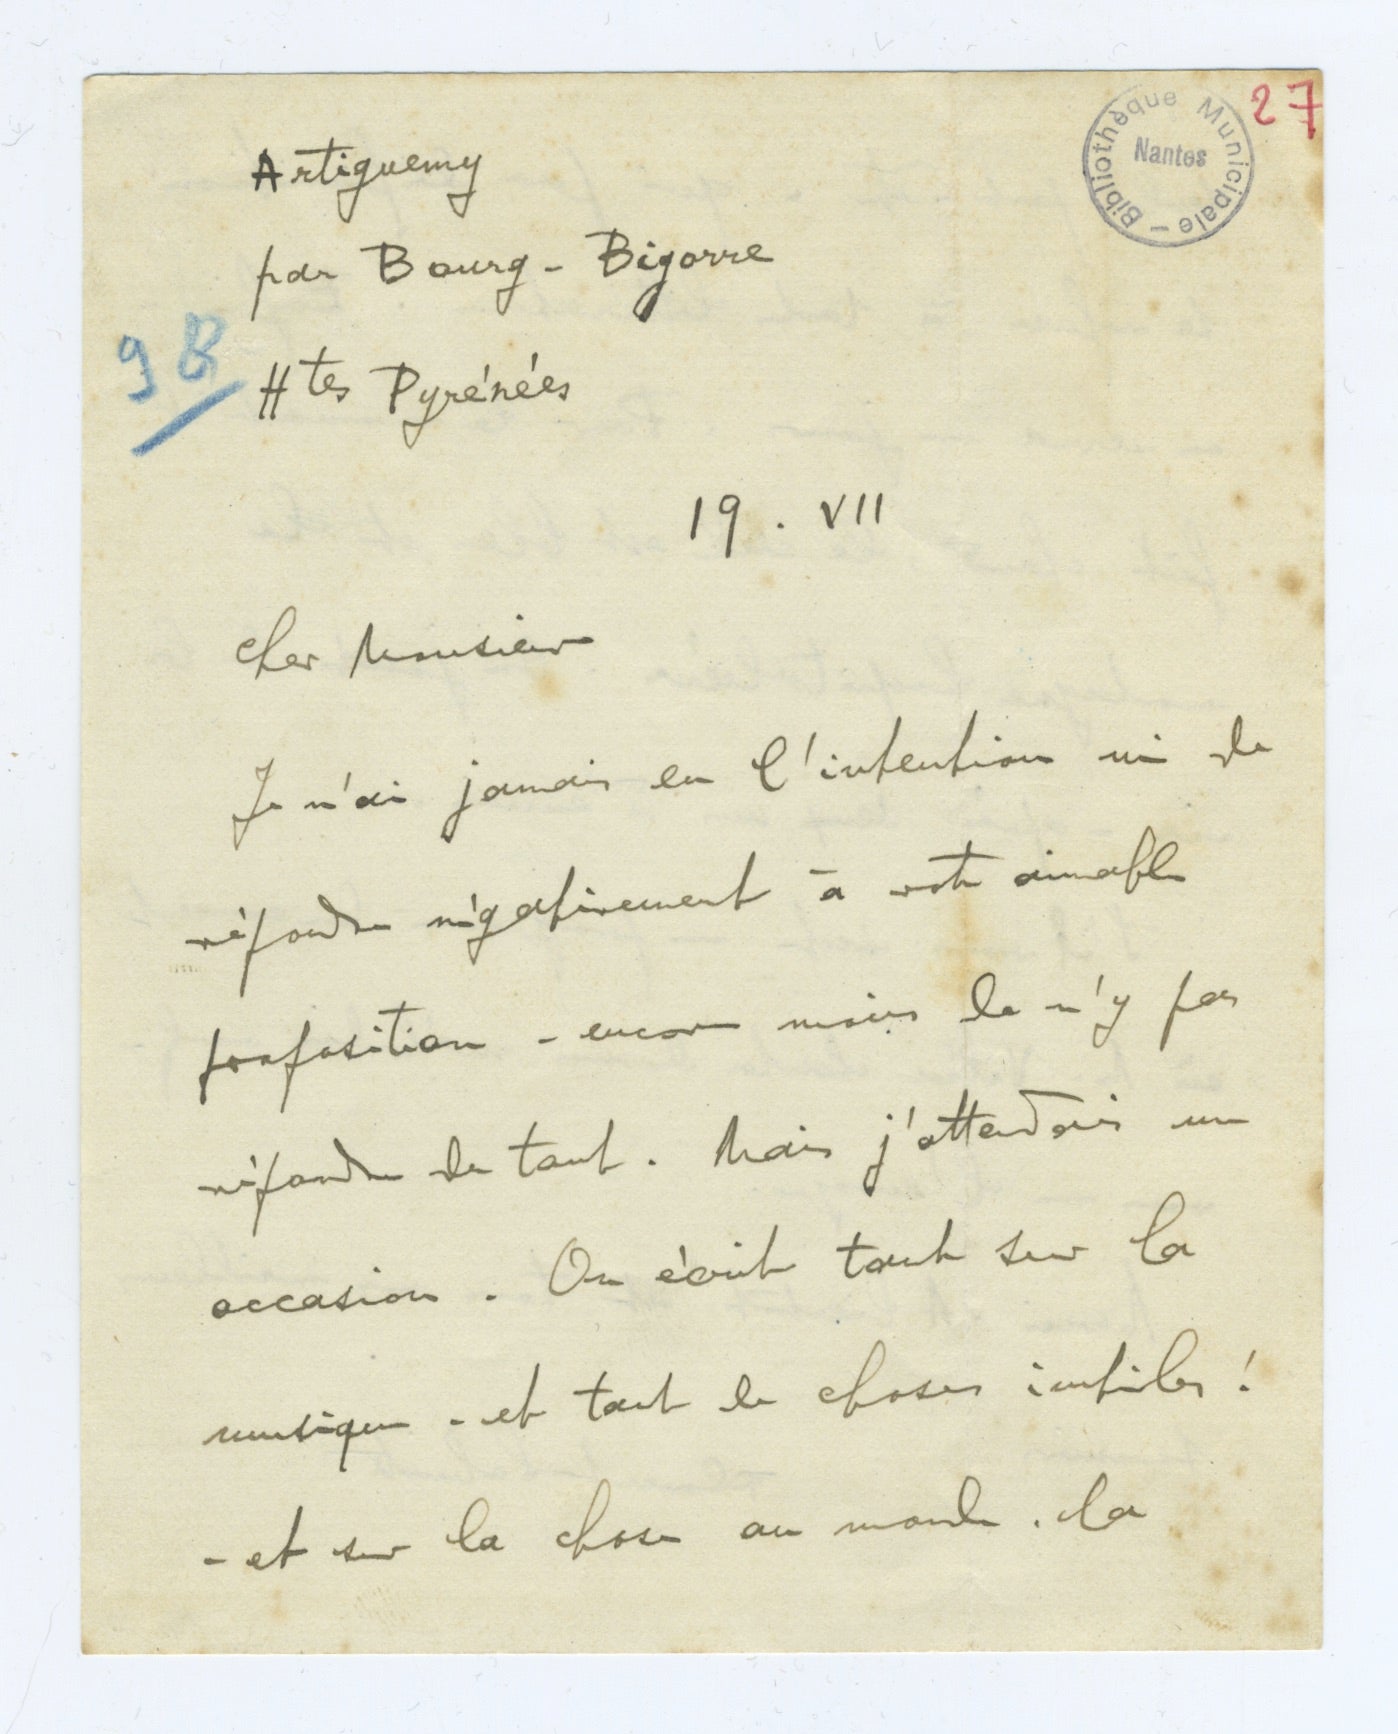 27
Bibliothèque Municipale - Nantes
Artiguemy
par Bourg - Bigorre
9B
Htes Pyrénées
19. VII
Cher Monsieur
Je n'ai jamais eu l'intention ni de
répondre négativement à votre aimable
proposition - encore moins de n'y pas
répondre du tout. Mais j'attendais une
occasion. On écrit tant sur la
musique - et tant de choses inutiles !
- et sur la chose au monde. la